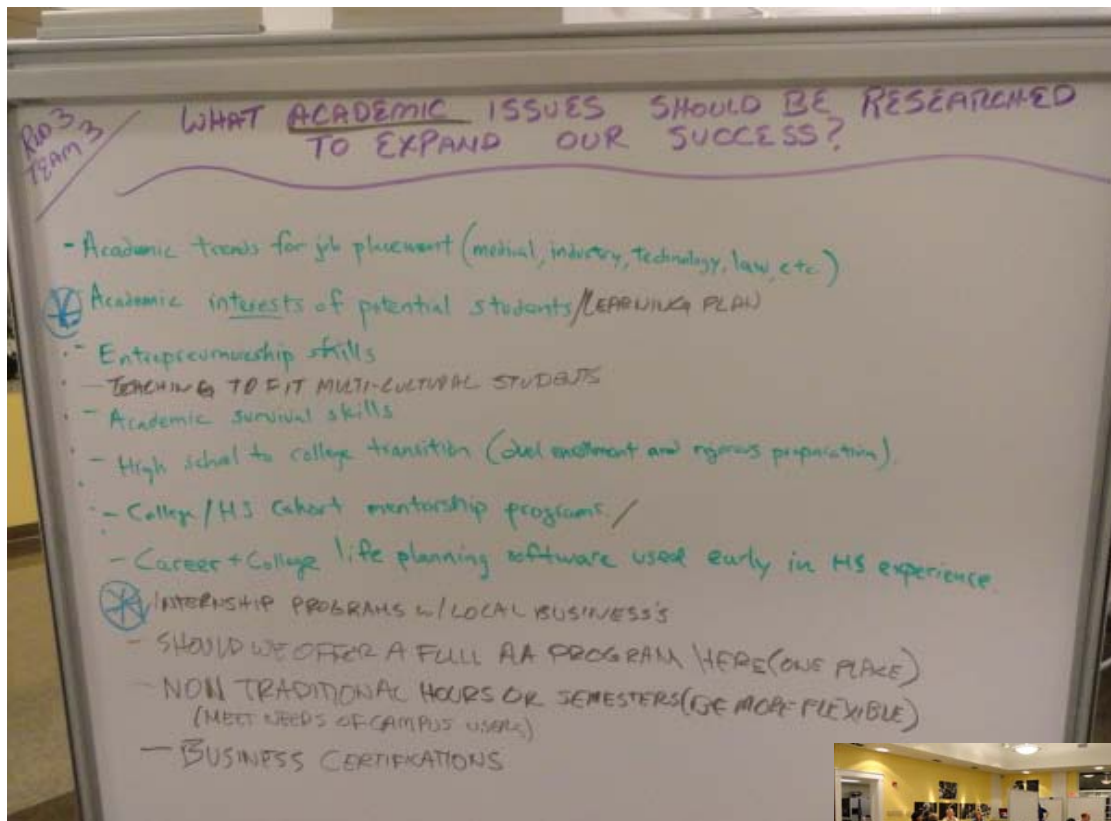 RND 3
TEAM 3
WHAT ACADEMIC ISSUES SHOULD BE RESEARCHED
TO EXPAND OUR SUCCESS?
- Academic trends for job placement (medical, industry, technology, law, etc.)
Academic interests of potential students/LEARNING PLAN
- Entrepreunueship skills
- TEACHING TO FIT MULTI-CULTURAL STUDENTS
- Academic survival skills
- High school to college transition (duel enrollment and rigorous preparation).
- College/HS Cohort mentorship programs. /
- Career + College life planning software used early in HS experience.
INTERNSHIP PROGRAMS W/LOCAL BUSINESS'S
- SHOULD WE OFFER A FULL AA PROGRAM HERE (ONE PLACE)
- NON TRADITIONAL HOURS OR SEMESTERS (BE MORE FLEXIBLE)
(MEET NEEDS OF CAMPUS USERS)
- BUSINESS CERTIFICATIONS